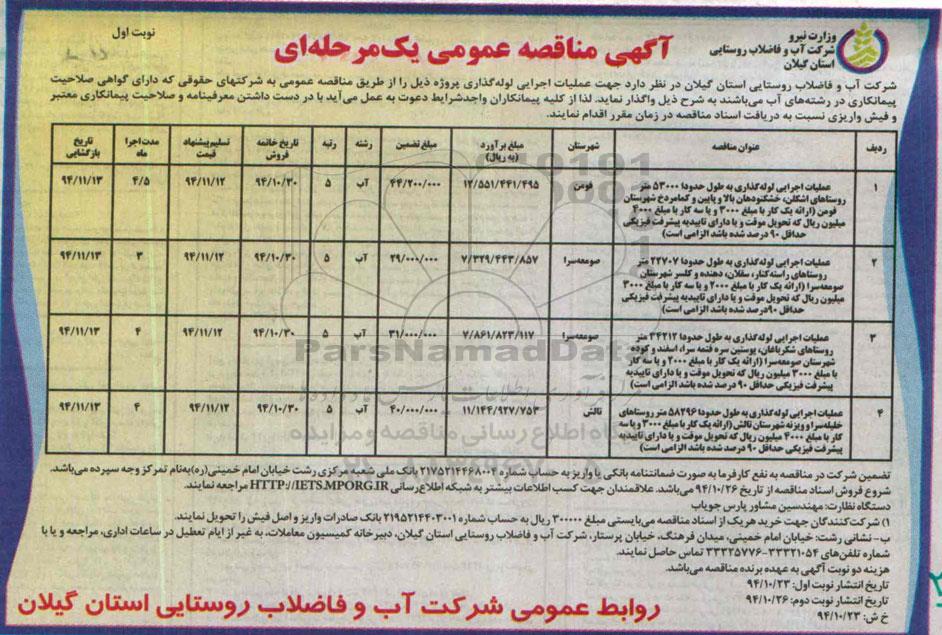 وزارت نیرو
شرکت آب و فاضلاب روستایی
استان گیلان
آگهی مناقصه عمومی یک‌مرحله‌ای
نوبت اول
شرکت آب و فاضلاب روستایی استان گیلان در نظر دارد جهت عملیات اجرایی لوله‌گذاری پروژه ذیل را از طریق مناقصه عمومی به شرکتهای حقوقی که دارای گواهی صلاحیت
پیمانکاری در رشته‌های آب می‌باشند به شرح ذیل واگذار نماید. لذا از کلیه پیمانکاران واجدشرایط دعوت به عمل می‌آید با در دست داشتن معرفینامه و صلاحیت پیمانکاری معتبر
و فیش واریزی نسبت به دریافت اسناد مناقصه در زمان مقرر اقدام نمایند.
ردیف عنوان مناقصه شهرستان مبلغ برآورد (به ریال) مبلغ تضمین رشته رتبه تاریخ خاتمه فروش تسلیم پیشنهاد قیمت مدت اجرا ماه تاریخ بازگشایی
۱ عملیات اجرایی لوله‌گذاری به طول حدودا ۵۳۰۰۰ متر فومن ۱۲/۵۵۱/۴۴۱/۴۹۵ ۴۴/۲۰۰/۰۰۰ آب ۵ ۹۴/۱۰/۳۰ ۹۴/۱۱/۱۲ ۴/۵ ۹۴/۱۱/۱۳
روستاهای اشکلن، خشکنودهان بالا و پایین و کمامردخ شهرستان
فومن (ارائه یک کار با مبلغ ۳۰۰۰ و یا سه کار با مبلغ ۴۰۰۰
میلیون ریال که تحویل موقت و یا دارای تاییدیه پیشرفت فیزیکی
حداقل ۹۰ درصد شده باشد الزامی است)
۲ عملیات اجرایی لوله‌گذاری به طول حدودا ۲۲۷۰۷ متر صومعه‌سرا ۷/۳۲۹/۴۴۳/۸۵۷ ۲۹/۰۰۰/۰۰۰ آب ۵ ۹۴/۱۰/۳۰ ۹۴/۱۱/۱۲ ۳ ۹۴/۱۱/۱۳
روستاهای راسته‌کنار، سفلان، دهنده و کلسر شهرستان
صومعه‌سرا (ارائه یک کار با مبلغ ۲۰۰۰ و یا سه کار با مبلغ ۳۰۰۰
میلیون ریال که تحویل موقت و یا دارای تاییدیه پیشرفت فیزیکی
حداقل ۹۰درصد شده باشد الزامی است)
۳ عملیات اجرایی لوله‌گذاری به طول حدودا ۳۴۲۱۲ متر صومعه‌سرا ۷/۸۶۱/۸۲۳/۱۱۷ ۳۱/۰۰۰/۰۰۰ آب ۵ ۹۴/۱۰/۳۰ ۹۴/۱۱/۱۲ ۴ ۹۴/۱۱/۱۳
روستاهای شکرباغان، پوستین سره فتمه سرا، اسفند و کوده
شهرستان صومعه‌سرا (ارائه یک کار با مبلغ ۲۰۰۰ و یا سه کار
با مبلغ ۳۰۰۰ میلیون ریال که تحویل موقت و یا دارای تاییدیه
پیشرفت فیزیکی حداقل ۹۰ درصد شده باشد الزامی است)
۴ عملیات اجرایی لوله‌گذاری به طول حدودا ۵۸۲۹۶ متر روستاهای تالش ۱۱/۱۴۴/۹۲۷/۷۵۳ ۴۰/۰۰۰/۰۰۰ آب ۵ ۹۴/۱۰/۳۰ ۹۴/۱۱/۱۲ ۴ ۹۴/۱۱/۱۳
خلیله‌سرا و ویزنه شهرستان تالش (ارائه یک کار با مبلغ ۳۰۰۰ و یا سه
کار با مبلغ ۴۰۰۰ میلیون ریال که تحویل موقت و یا دارای تاییدیه
پیشرفت فیزیکی حداقل ۹۰ درصد شده باشد الزامی است)
ParsNamadData
تضمین شرکت در مناقصه به نفع کارفرما به صورت ضمانتنامه بانکی یا واریز به حساب شماره ۲۱۷۵۲۱۴۴۶۸۰۰۴ بانک ملی شعبه مرکزی رشت خیابان امام خمینی(ره)به‌نام تمرکز وجه سپرده می‌باشد.
شروع فروش اسناد مناقصه از تاریخ ۹۴/۱۰/۲۶ می‌باشد. علاقمندان جهت کسب اطلاعات بیشتر به شبکه اطلاع‌رسانی HTTP://IETS.MPORG.IR مراجعه نمایند.
دستگاه نظارت: مهندسین مشاور پارس جویاب
۱) شرکت‌کنندگان جهت خرید هریک از اسناد مناقصه می‌بایستی مبلغ ۳۰۰۰۰۰ ریال به حساب شماره ۲۱۹۵۲۱۴۴۰۳۰۰۱ بانک صادرات واریز و اصل فیش را تحویل نمایند.
ب- نشانی رشت: خیابان امام خمینی، میدان فرهنگ، خیابان پرستار، شرکت آب و فاضلاب روستایی استان گیلان، دبیرخانه کمیسیون معاملات، به غیر از ایام تعطیل در ساعات اداری، مراجعه و یا با
شماره تلفن‌های ۳۳۳۲۱۰۵۴-۳۳۳۲۵۷۷۶ تماس حاصل نمایند.
هزینه دو نوبت آگهی به عهده برنده مناقصه می‌باشد.
تاریخ انتشار نوبت اول: ۹۴/۱۰/۲۳
تاریخ انتشار نوبت دوم: ۹۴/۱۰/۲۶
خ ش: ۹۴/۱۰/۲۳
روابط عمومی شرکت آب و فاضلاب روستایی استان گیلان